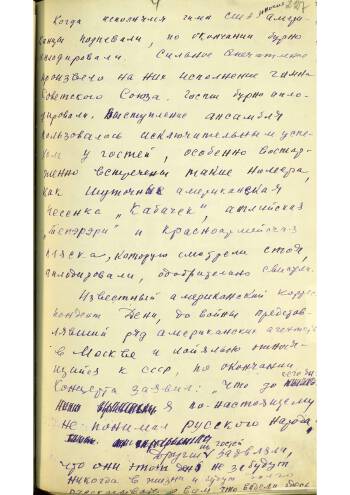 Когда исполнялся гимн США, многие амери-
канцы подпевали, по окончании бурно
аплодировали. Сильное впечатление
произвело на них исполнение гимна
Советского Союза. Гости бурно апло-
дировали. Выступление ансамбля
пользовалось исключительным успе-
хом у гостей, особенно востор-
женно встречены такие номера,
как шуточная американская
песенка „Кабачек", английская
„Типэрэри" и Красноармейская
пляска, которую смотрели стоя,
аплодировали, одобрительно свистели.
Известный американский коррес-
пондент Дени, до войны представ-
лявший ряд американских агентств
в Москве и лояльно относя-
щийся к СССР, по окончании
концерта заявил: „Что до
я по-настоящему
не понимал русского народа.
Другие из гостей заявляли,
что они этого дня не забудут
никогда в жизни и будут